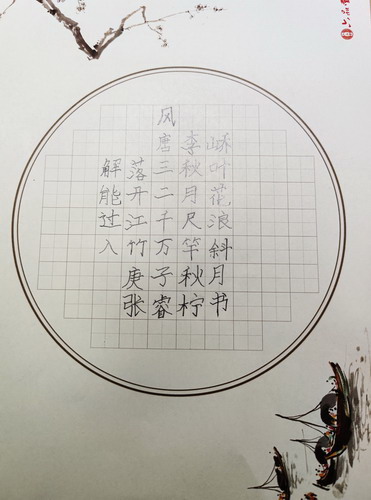 风
唐李峤
解落三秋叶
能开二月花
过江千尺浪
入竹万竿斜
庚子秋月
张睿柠书